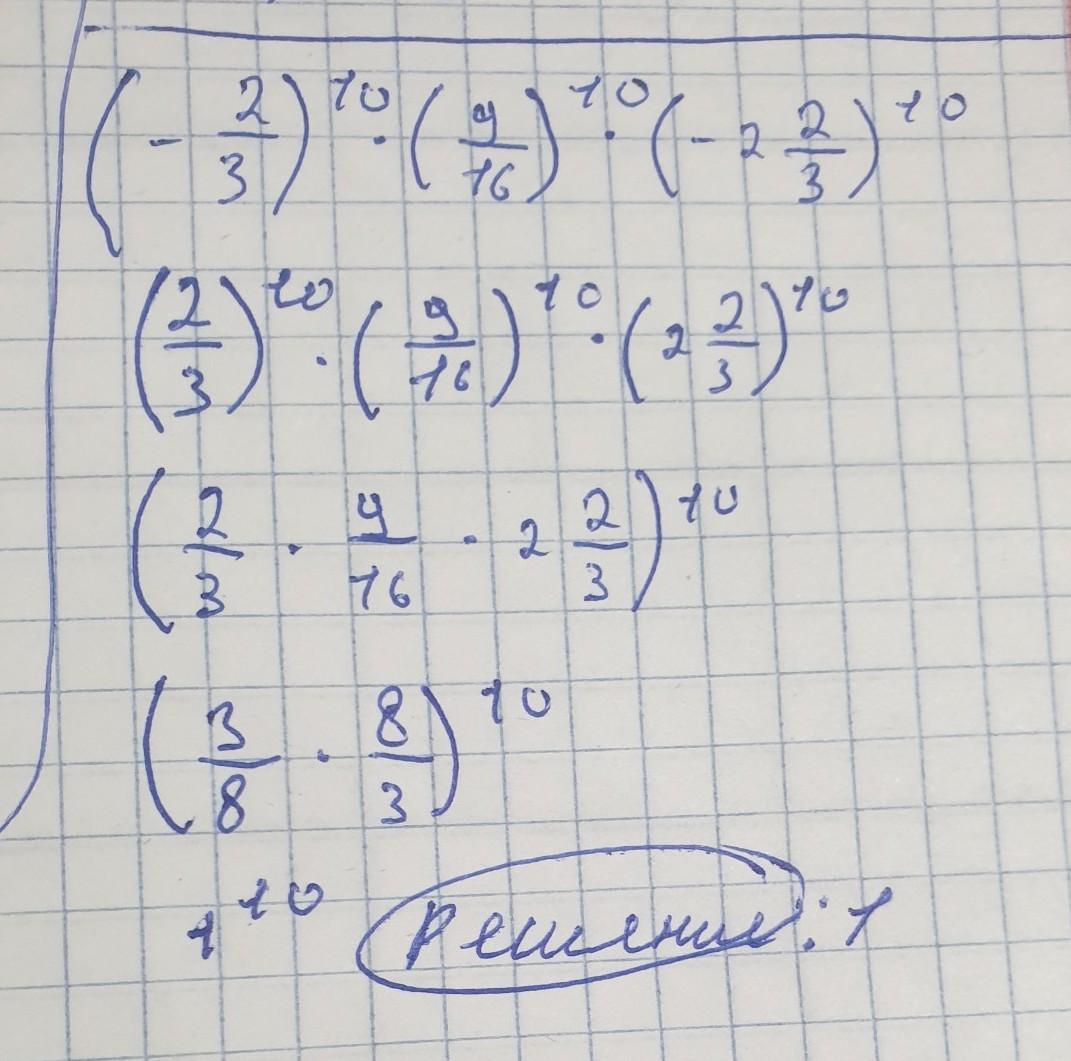 (- 2/3)^10 · (9/16)^10 · (- 2 2/3)^10
(2/3)^10 · (9/16)^10 · (2 2/3)^10
(2/3 · 9/16 · 2 2/3)^10
(3/8 · 8/3)^10
1^10 Решение: 1